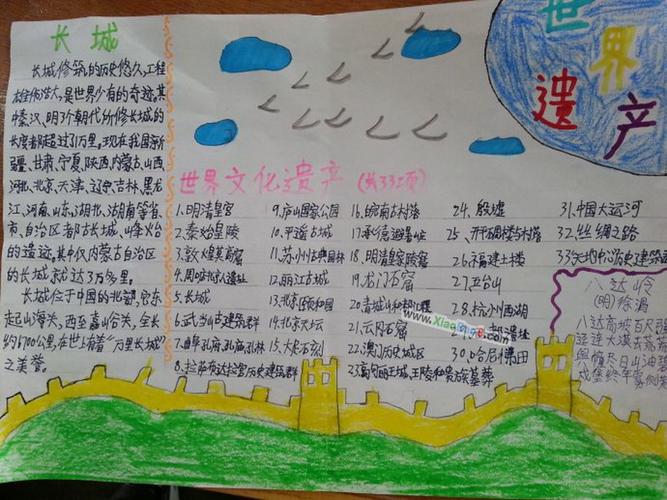 长城
长城修筑的历史悠久,工程
雄伟浩大,是世界少有的奇迹。其
中秦汉、明3个朝代所修长城的
长度都超过了1万里。现在我国新
疆、甘肃、宁夏、陕西、内蒙古、山西
河北、北京、天津、辽宁、吉林、黑龙
江、河南、山东、湖北、湖南等省
市、自治区都有古长城、烽火台
的遗迹,其中仅内蒙古自治区
的长城就达3万多里。
长城位于中国的北部,它东
起山海关,西至嘉峪关,全长
约6700公里,在世上有着“万里长城”
之美誉。
世界遗产
世界文化遗产(共33项)
1.明清皇宫
2.秦始皇陵
3.敦煌莫高窟
4.周口北京人遗址
5.长城
6.武当山古建筑群
7.曲阜孔府,孔庙,孔林
8.拉萨布达拉宫历史建筑群
9.庐山国家公园
10.平遥古城
11.苏州古典园林
12.丽江古城
13.北京颐和园
14.北京天坛
15.大足石刻
16.皖南古村落
17.承德避暑山庄
18.明清皇家陵寝
19.龙门石窟
20.青城山和都江堰
21.云冈石窟
22.澳门历史城区
23.高句丽王城、王陵和贵族墓葬
24.殷墟
25、开平碉楼与村落
26.福建土楼
27.五台山
28.杭州西湖
遗址
30.哈尼梯田
31.中国大运河
32.丝绸之路
33.天地中心历史建筑
八达岭
(明)徐渭
八达高坡百尺